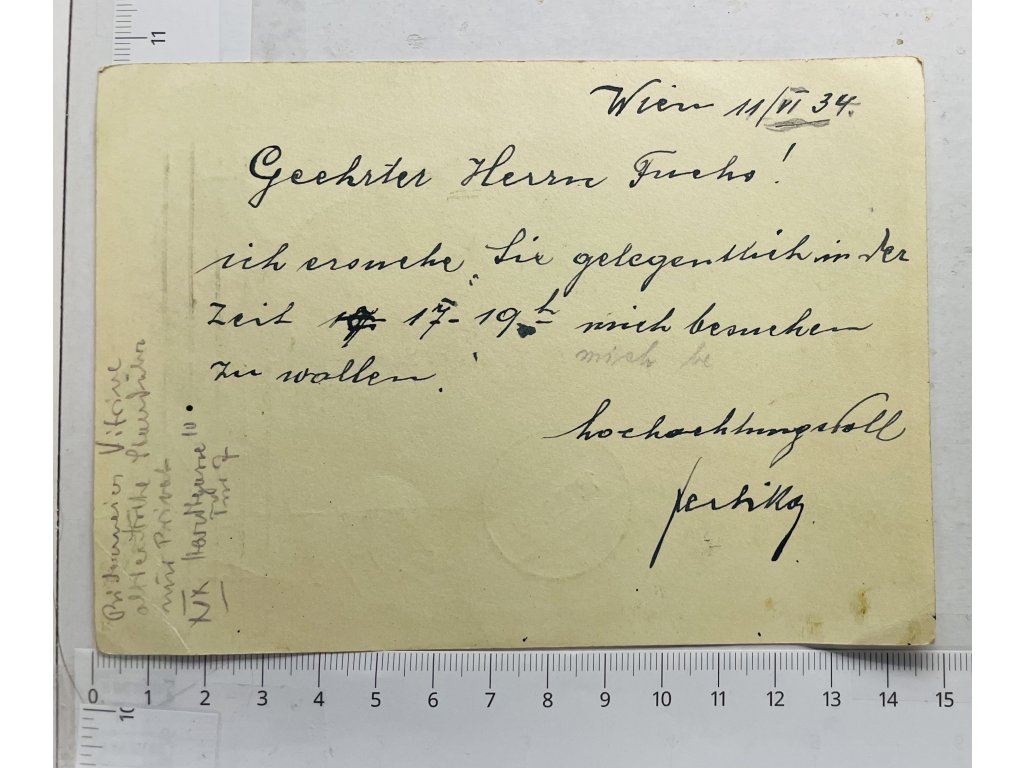 Wien 11/VI 34.
Geehrter Herrn Fuchs!
ich ersuche Sie gelegentlich in der
Zeit 17-19h mich besuchen
mich be
zu wollen.
hochachtungsvoll
Vitrine
nur Privat
XIX Hardtgasse 10
Tür 7
11
0 1 2 3 4 5 6 7 8 9 10 11 12 13 14 15
10